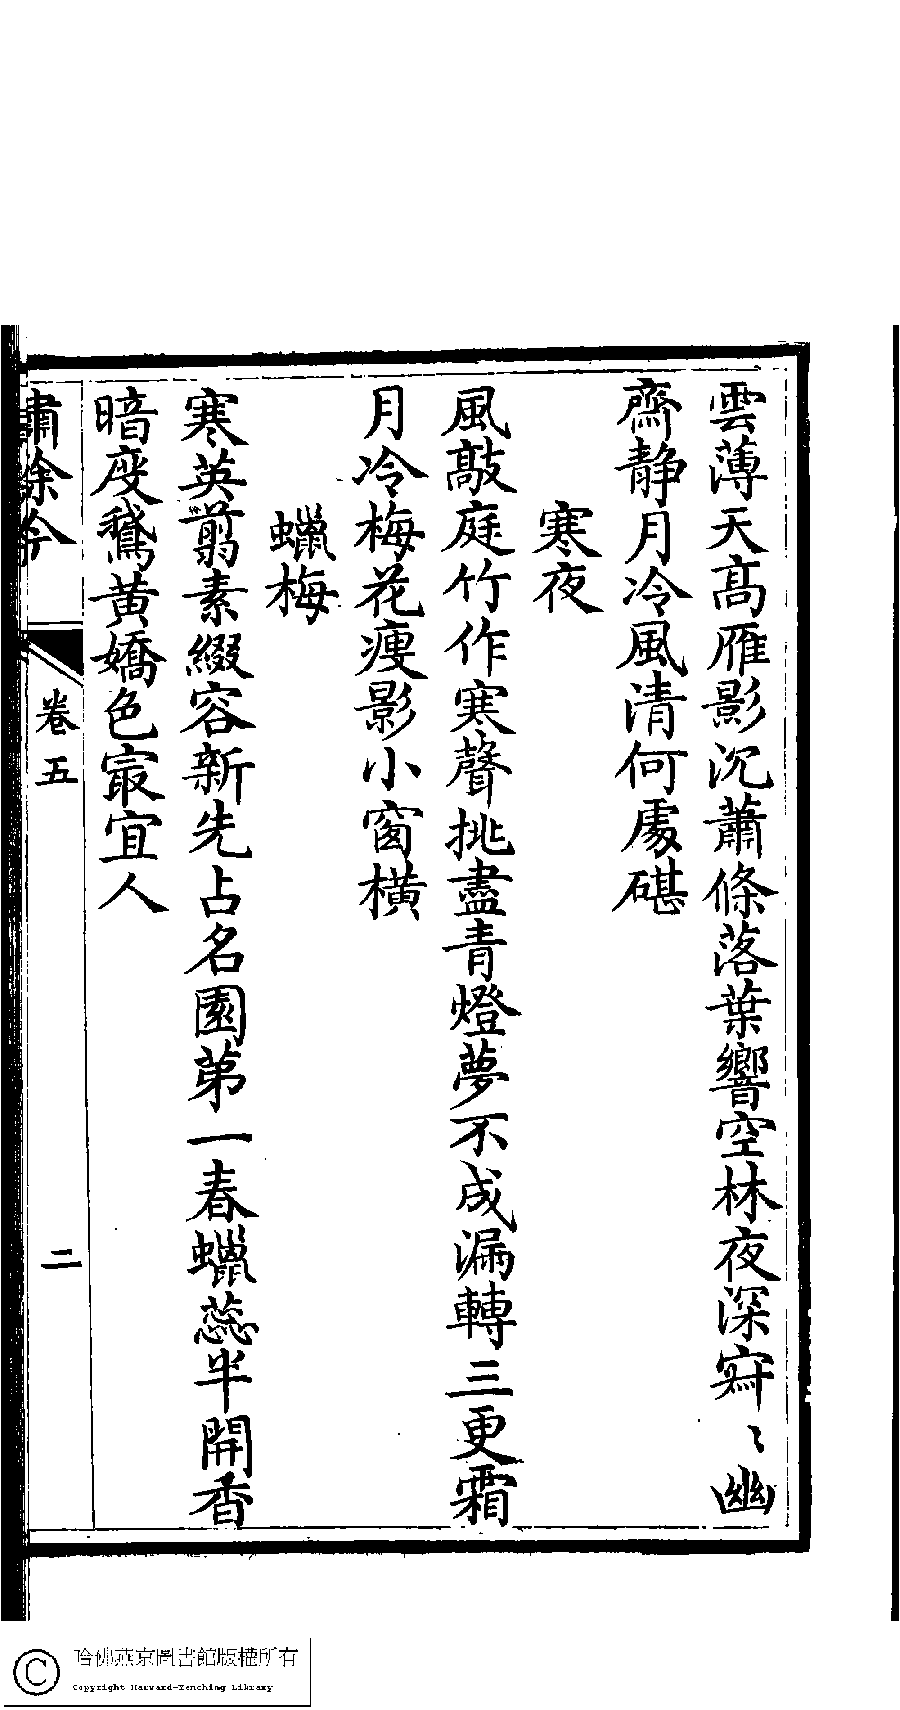 雲薄天高雁影沉蕭條落葉響空林夜深𡧯〻幽
齋静月冷風清何處碪
寒夜
風敲庭竹作寒聲挑盡青燈夢不成漏轉三更霜
月冷梅花瘦影小窗横
蠟梅
寒英翦素綴容新先占名園苐一春蠟蕊半開香
暗度鵞黄嬌色㝡宜人
肅餘今
卷五
二
哈佛燕京圖書館版權所有
Copyright Harvard-Yenching Library